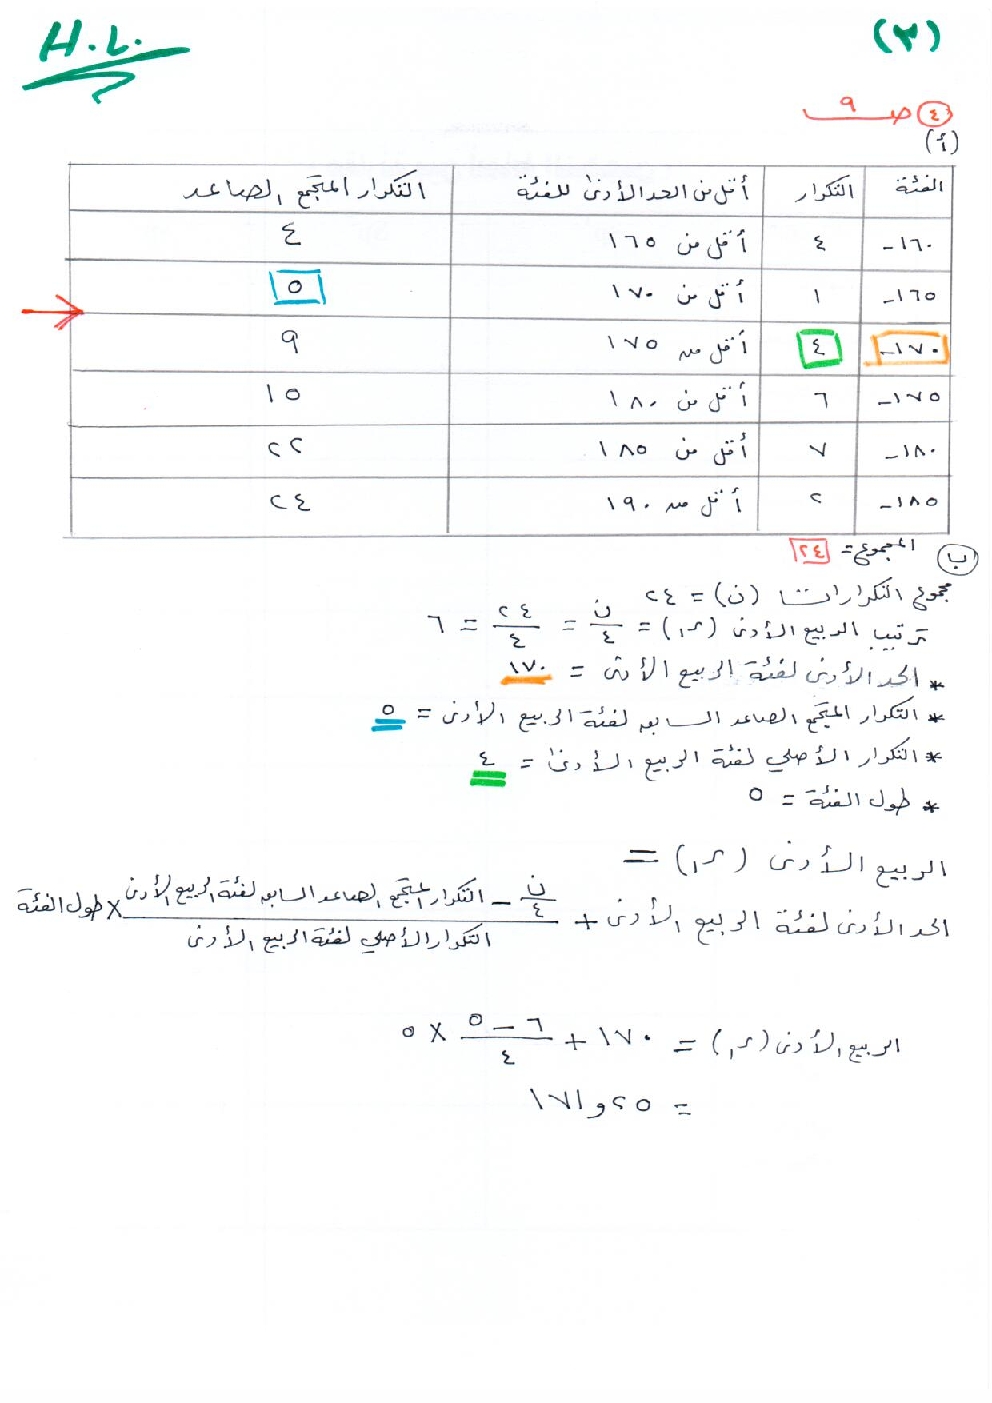 H.L.
(٣)
٤ ص ٩
(أ)
الفئة التكرار أقل من الحد الأدنى للفئة التكرار المتجمع الصاعد
١٦٠- ٤ أقل من ١٦٥ ٤
١٦٥- ١ أقل من ١٧٠ ٥
١٧٠- ٤ أقل من ١٧٥ ٩
١٧٥- ٦ أقل من ١٨٠ ١٥
١٨٠- ٧ أقل من ١٨٥ ٢٢
١٨٥- ٢ أقل من ١٩٠ ٢٤
المجموع = ٢٤
ب
مجموع التكرارات (ن) = ٢٤
ترتيب الربيع الأدنى (ر١) = ن/٤ = ٢٤/٤ = ٦
* الحد الأدنى لفئة الربيع الأدنى = ١٧٠
* التكرار المتجمع الصاعد السابق لفئة الربيع الأدنى = ٥
* التكرار الأصلي لفئة الربيع الأدنى = ٤
* طول الفئة = ٥
الربيع الأدنى (ر١) =
الحد الأدنى لفئة الربيع الأدنى + (ن/٤ - التكرار المتجمع الصاعد السابق لفئة الربيع الأدنى)/(التكرار الأصلي لفئة الربيع الأدنى) × طول الفئة
الربيع الأدنى (ر١) = ١٧٠ + (٦ - ٥)/٤ × ٥
= ١٧١و٢٥